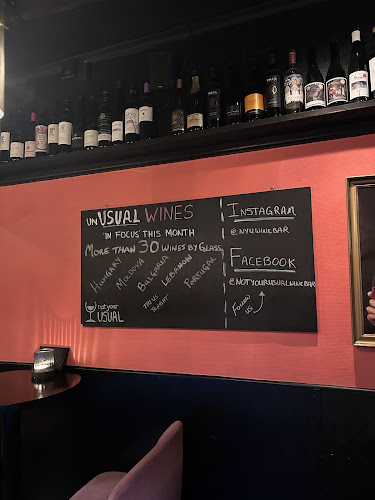 unUSUAL WINES
'IN FOCUS' THIS MONTH
MORE THAN 30 WINES BY GLASS
HUNGARY
MOLDOVA
BULGARIA
LEBANON
PORTUGAL
TRY US
TONIGHT
not your
USUAL
INSTAGRAM
@NYUWINEBAR
FACEBOOK
@NOTYOURUSUALWINEBAR
FOLLOW
US